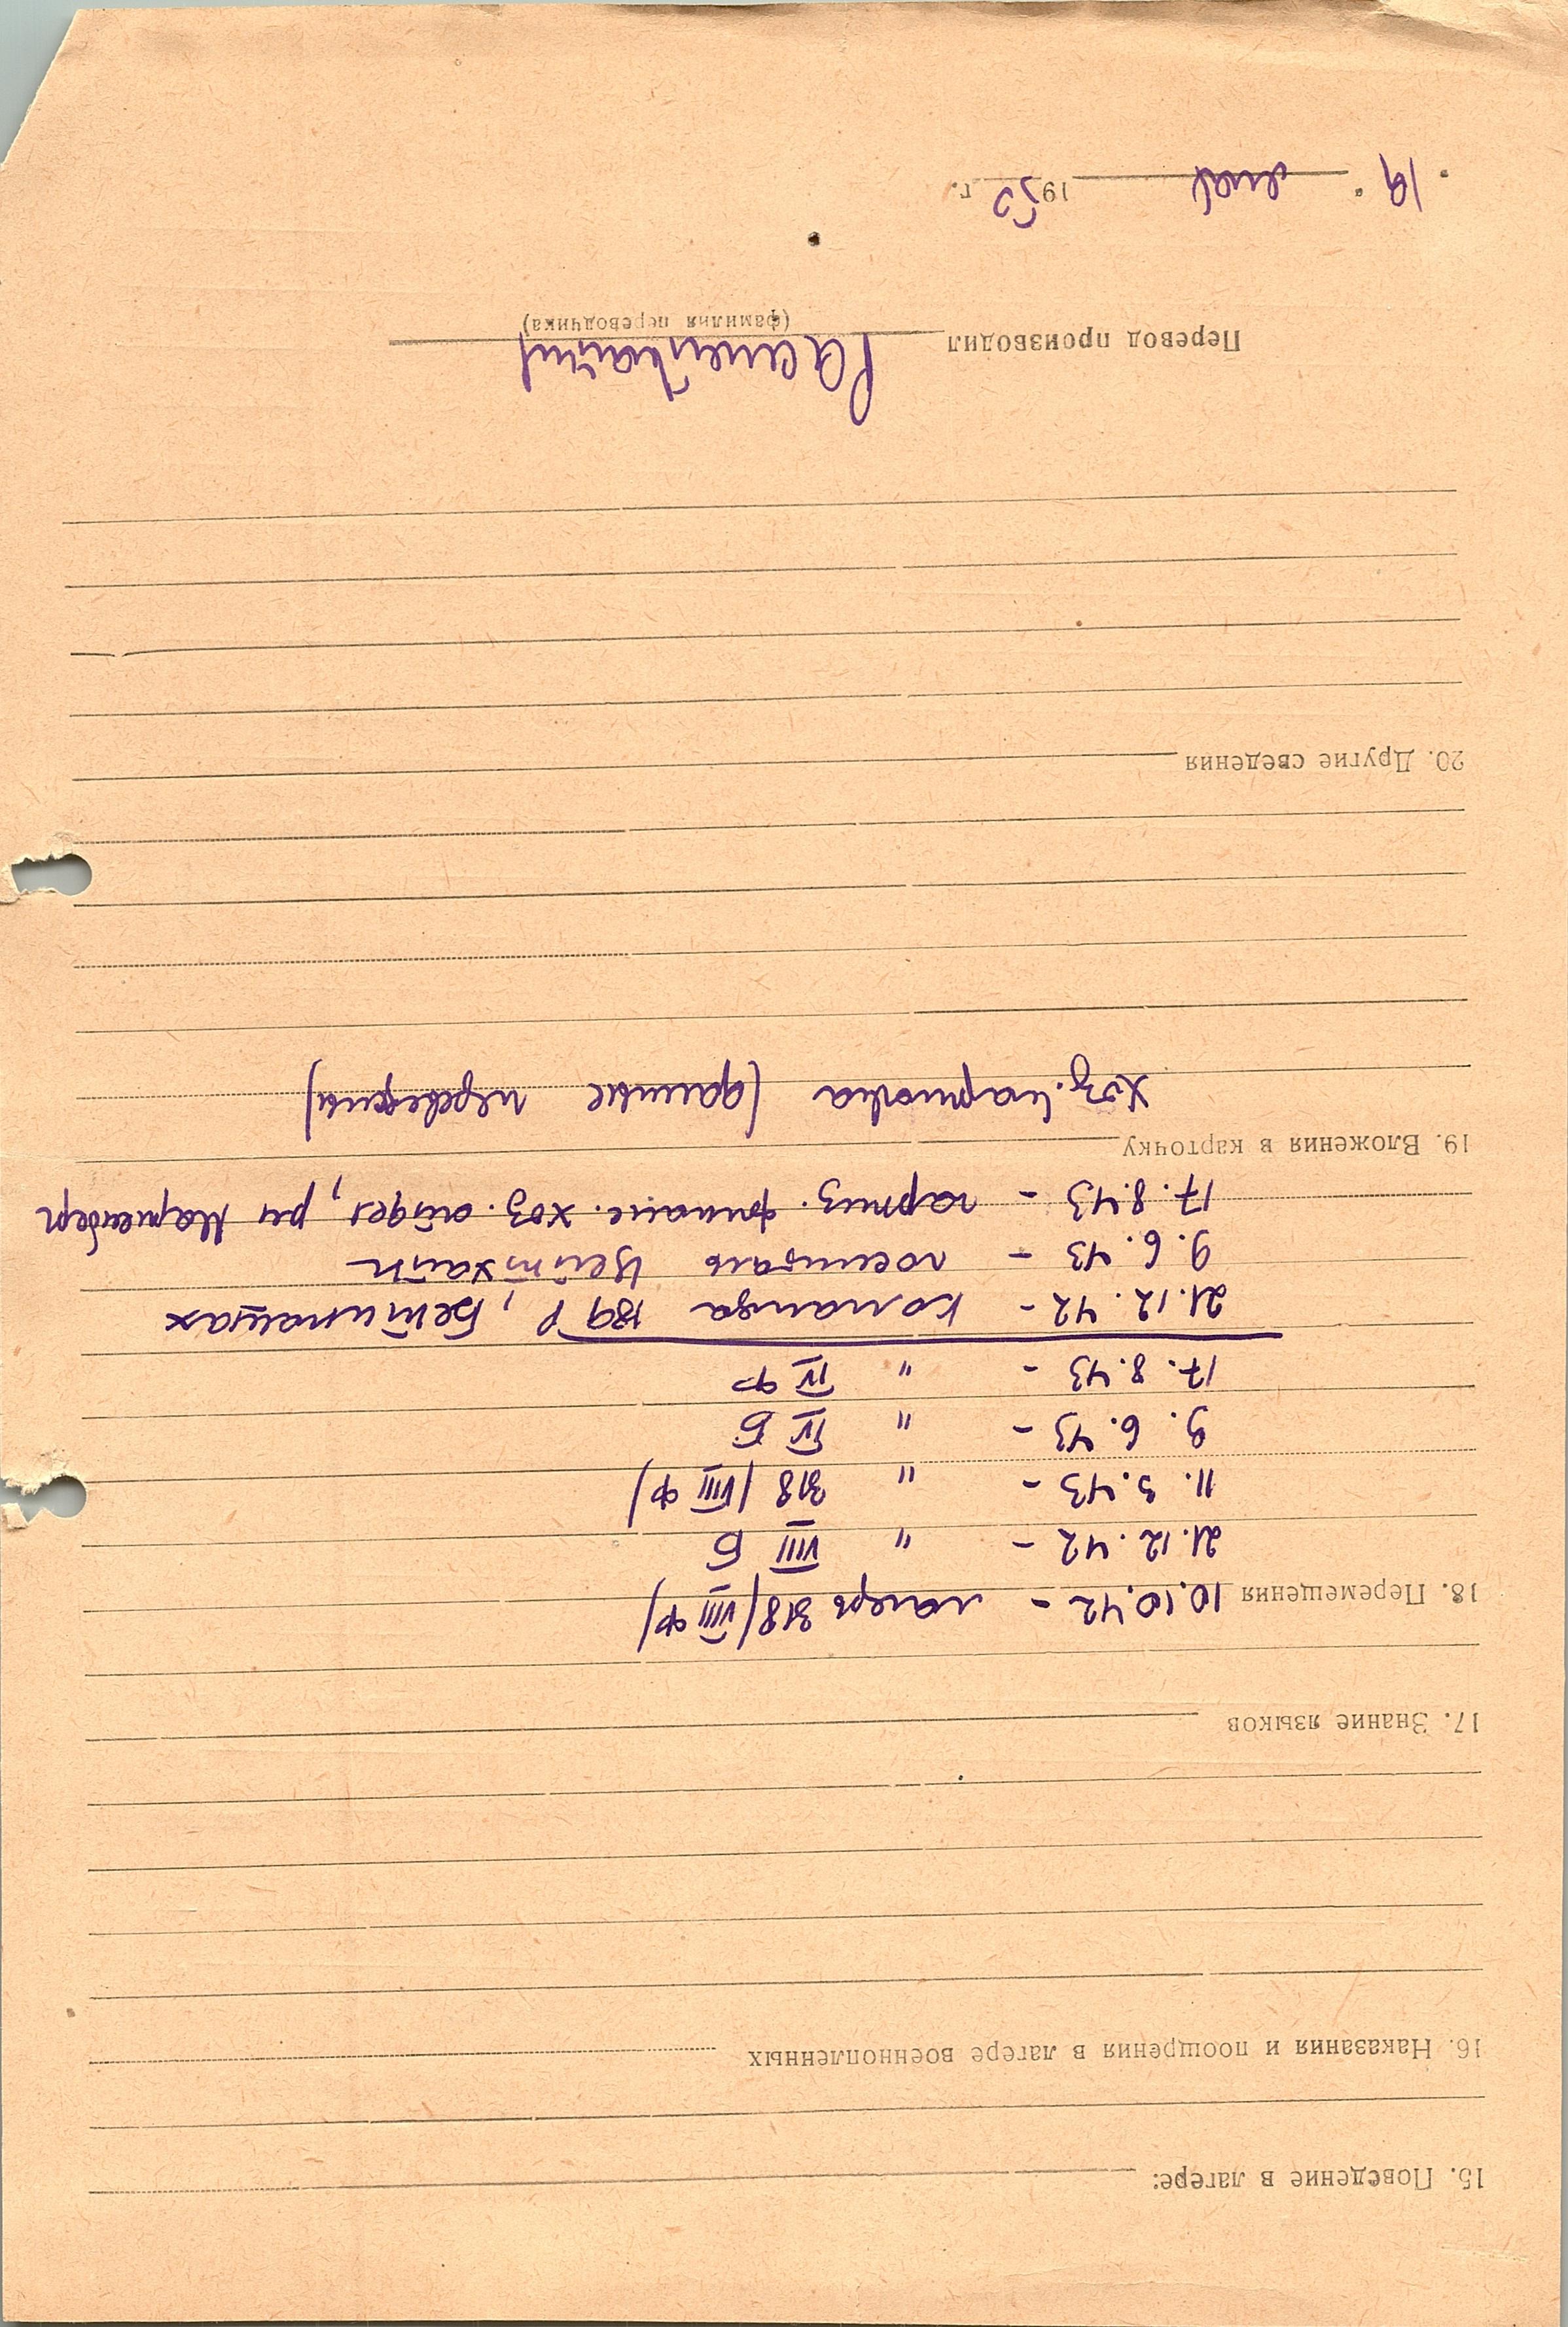 15. Поведение в лагере:
16. Наказания и поощрения в лагере военнопленных
17. Знание языков
18. Перемещения 10.10.42 - лагерь 318 /VIII Ф/
21.12.42 - " VIII Б
11.3.43 - " 318 /VIII Ф/
9.6.43 - " IV Б
17.8.43 - " IV Ф
21.12.42 - команда 189 Р,
9.6.43 - госпиталь Цейтхайн
17.8.43 - хоз. отдел, рк Мариенберг
19. Вложения в карточку
Хоз. карточка (данные переведены)
20. Другие сведения
Перевод производил
(фамилия переводчика)
19 мая 1950 г.